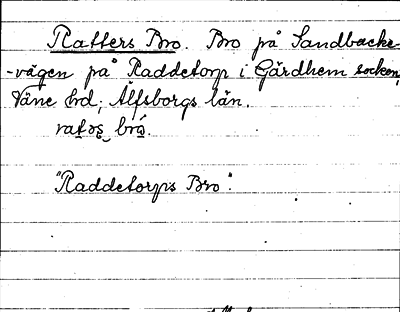 Ratters Bro. Bro på Sandbacke-
-vägen på Raddetorp i Gärdhem socken,
Väne hd; Älfsborgs län.
"Raddetorps Bro".